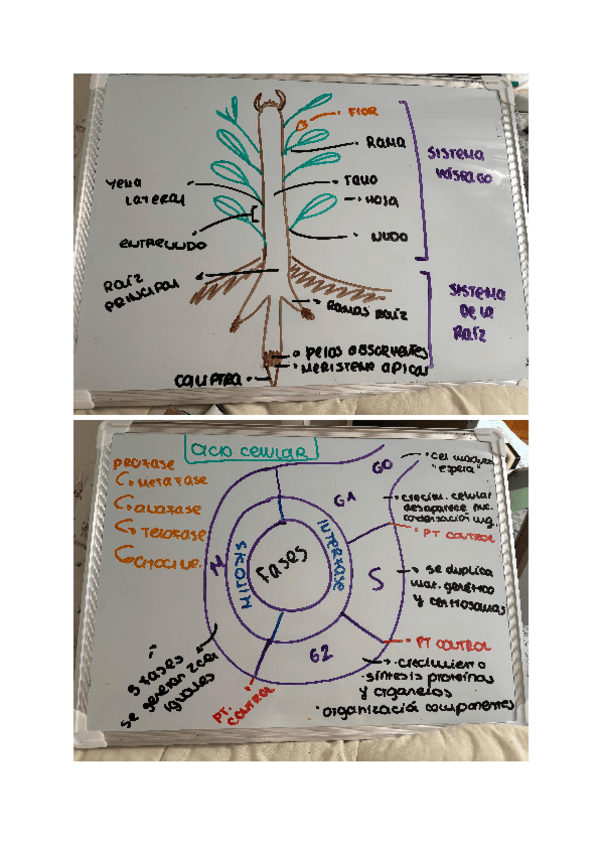 FlOR
RAMA
SISTEMA
VÁSTAGO
YEMA
LATERAL
TALLO
HOJA
ENTRENUDO
NUDO
RAÍZ
PRINCIPAL
SISTEMA
DE LA
RAÍZ
RAMAS RAÍZ
PELOS ABSORVENTES
MERISTEMA APICAL
CALIPTRA
CICLO CELULAR
PROFASE
METAFASE
ANAFASE
TELOFASE
CITOCINE.
G0
cel madura
"espera"
G1
crecim. celular
desaparece nuc.
PT CONTROL
M
MITOSIS
INTERFASE
FASES
S
se duplica
mat. genético
y centrosomas
PT CONTROL
G2
crecimiento
síntesis proteínas
y organelos
organización componentes
PT.
CONTROL
5 FASES
se generan 2 cel
iguales